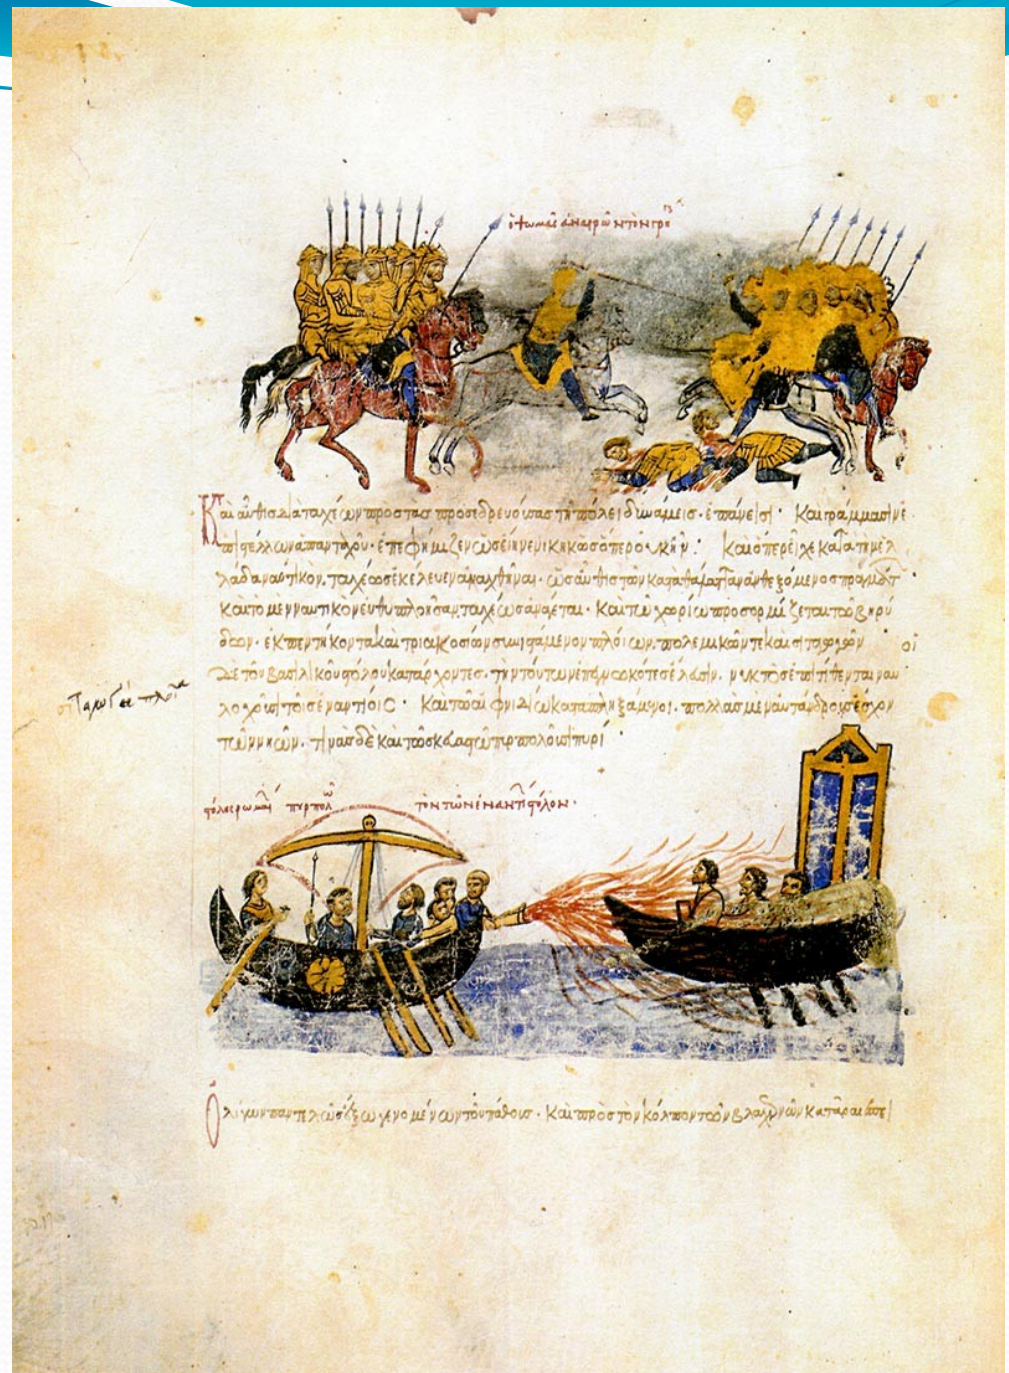 ὁ θωμᾶς ἀναιρῶν τὸν γρη
Καὶ αὖθις διαταχέων πρὸς τὰς προσεδρευούσας τῇ πόλει δυνάμεις· ἐπάνεισι· Καὶ γράμμασιν ἐ
πιστέλλων ἁπανταχοῦ· ἐπεφήμιζεν ὡς εἴη νενικηκὼς ὅπερ οὐκ ἦν: Καὶ ὅπερ εἶχε κατὰ τὴν ἑλ
λάδα ναυτικὸν, ταχέως ἐκέλευεν ἀναχθῆναι· ὡς αὖθις τῶν κατὰ θάλατταν ἀνθεξόμενος πραγμάτ
Καὶ τὸ μὲν ναυτικὸν εὐθυπλοῆσαν, ταχέως ἀνάγεται· Καὶ τῶ χωρίω προσορμίζεται τῶν βηρύ
δων· ἐκ πεντήκοντα καὶ τριακοσίων συνιστάμενον πλοίων, πολεμικῶν τε καὶ σιταγωγῶν οἱ
δὲ τοῦ βασιλικοῦ στόλου κατάρχοντες· τὴν τούτων ἐπεγνωκότες ἔλασιν. νυκτὸς ἐπιτίθενται ναυ
λοχοῦσι τοῖς ἐναντίοις· Καὶ τῶ αἰφνιδίω καταπληξάμενοι. πολλὰς μὲν αὐτάνδρους ἔσχον
τῶν νηῶν. τινὰς δὲ καὶ τῶ σκευαστῶ πυρπολοῦσι πυρί
στόλος ῥωμαίων πυρπολῶν τὸν τῶν ἐναντίων στόλον·
Ὀλίγων παντελῶς ἔξω γενομένων τοῦ πάθους· Καὶ πρὸς τὸν κόλπον τῶν βλαχερνῶν